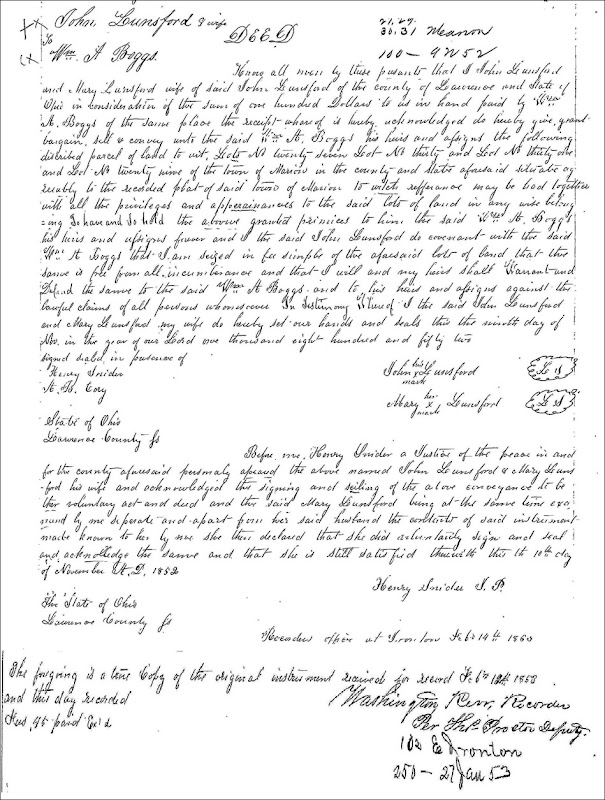 John Lunsford & wife
To
Wm. A Boggs.
DEED
27, 29.
30, 31 Mearon
100 - 9 N 52
Know all men by these presants that I John Lunsford
and Mary Lunsford wife of said John Lunsford of the county of Lawrence and State of
Ohio in consideration of the sum of one hundred Dollars to us in hand paid by Wm
A. Boggs of the same place the receipt whereof is hereby acknowledged do hereby give, grant
bargain, sell & convey unto the said Wm A. Boggs his heirs and assigns the following
discribed parcel of land to wit, Lots No twenty seven Loot No thirty and Loot No thirty one
and Loot No twenty nine of the town of Marion in the county and state aforesaid situate ag
reeably to the recorded plat of said town of Marion to witch refferance may be had together
with all the privileges and apperainances to the said lots of land in any wise belong
=ing To have and to hold the above granted primices to him the said Wm A. Boggs
his hiris and assigns firever and I the said John Lunsford do covenant with the said
Wm A Boggs that I am seized in fee simple of the aforesaid lots of land that the
same is free from all incumberance and that I will and my heirs shall Warrant and
Defend the samve to the said Wm A Boggs and to his heirs and assigns against the
lawful claims of all persons whomsoever In Testimony Whereof I the said John Lunsford
and Mary Lunsford my wife do hereby set our hands and seals this the ninth day of
Nov. in the year of our Lord one thousand eight hundred and fifty two
signed sealed in presence of
Henry Snider
A. B. Cory
John his x mark Lunsford
L S
Mary her x mark Lunsford
L S
State of Ohio
Lawrence County ss
Before me, Henry Snider a Justice of the peace in and
for the county aforesaid personaly apeared the above named John Lunsford & Mary Luns
-ford his wife and acknowledged the signing and seiling of the above conveyance to be
ther voluntary act and deed and the said Mary Lunsford being at the same time exa
mined by me seperate and apart from her said husband the contents of said instrument
made known to her by me she then declared that she did voluntarily sign and seal
and acknolledge the same and that she is still satisfied therewith this th 10th day
of November A.D. 1852
Henry Snider J. P.
The State of Ohio
Lawrence County ss
Recorders office at Ironton Feb 19th 1853
The forgoing is a true Copy of the original instrument received for record Feb 12th 1853
and this day recorded
Fees, 95 paid Ex'd
Washington Kerr, Recorder
Per Thos. Proctor Deputy.
102 E Ironton
250 - 27 Jan 53